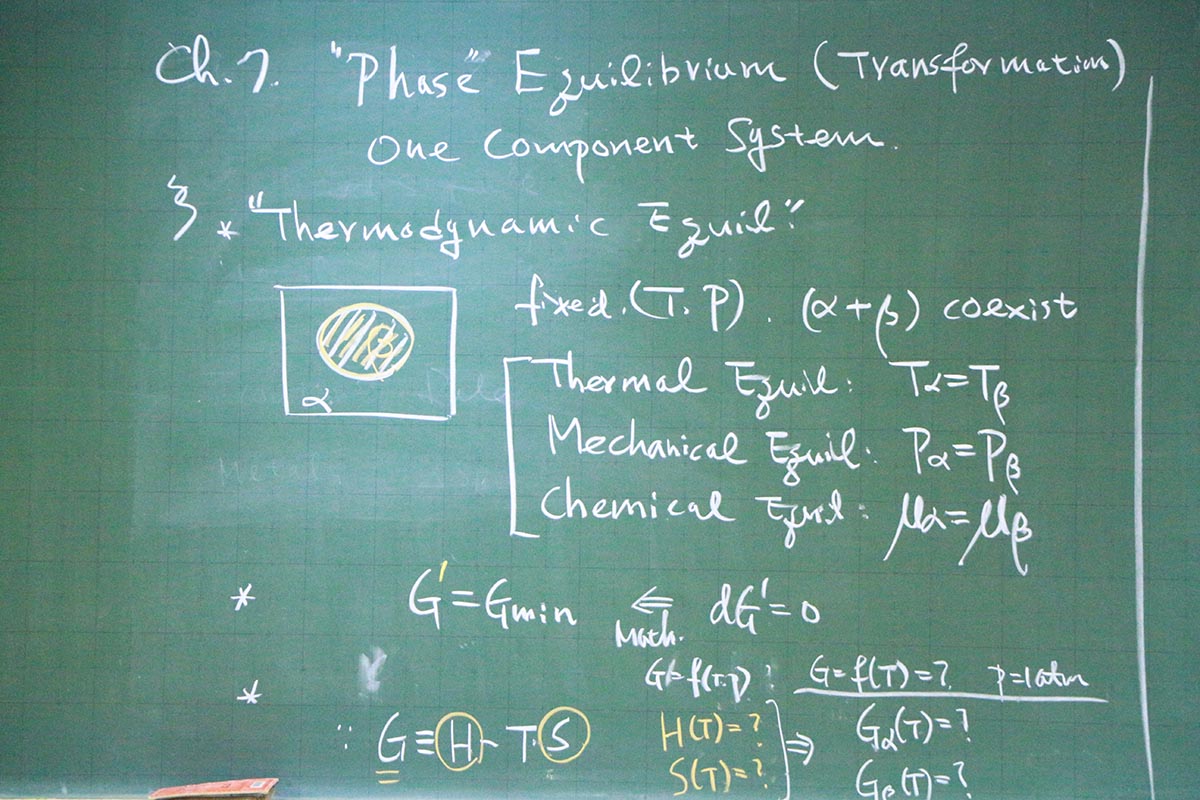 Ch.7. "Phase" Equilibrium (Transformation)
One Component System.
* "Thermodynamic Equil"
fixed.(T.P). (α+β) coexist
β
α
Thermal Equil: Tα=Tβ
Mechanical Equil: Pα=Pβ
Chemical Equil: μα=μβ
* G'=Gmin ⇐ dG'=0
Math.
* G'=f(T.P) : G=f(T)=? P=1atm
∵ G≡H-T·S H(T)=? ⇒ Gα(T)=?
S(T)=? Gβ(T)=?